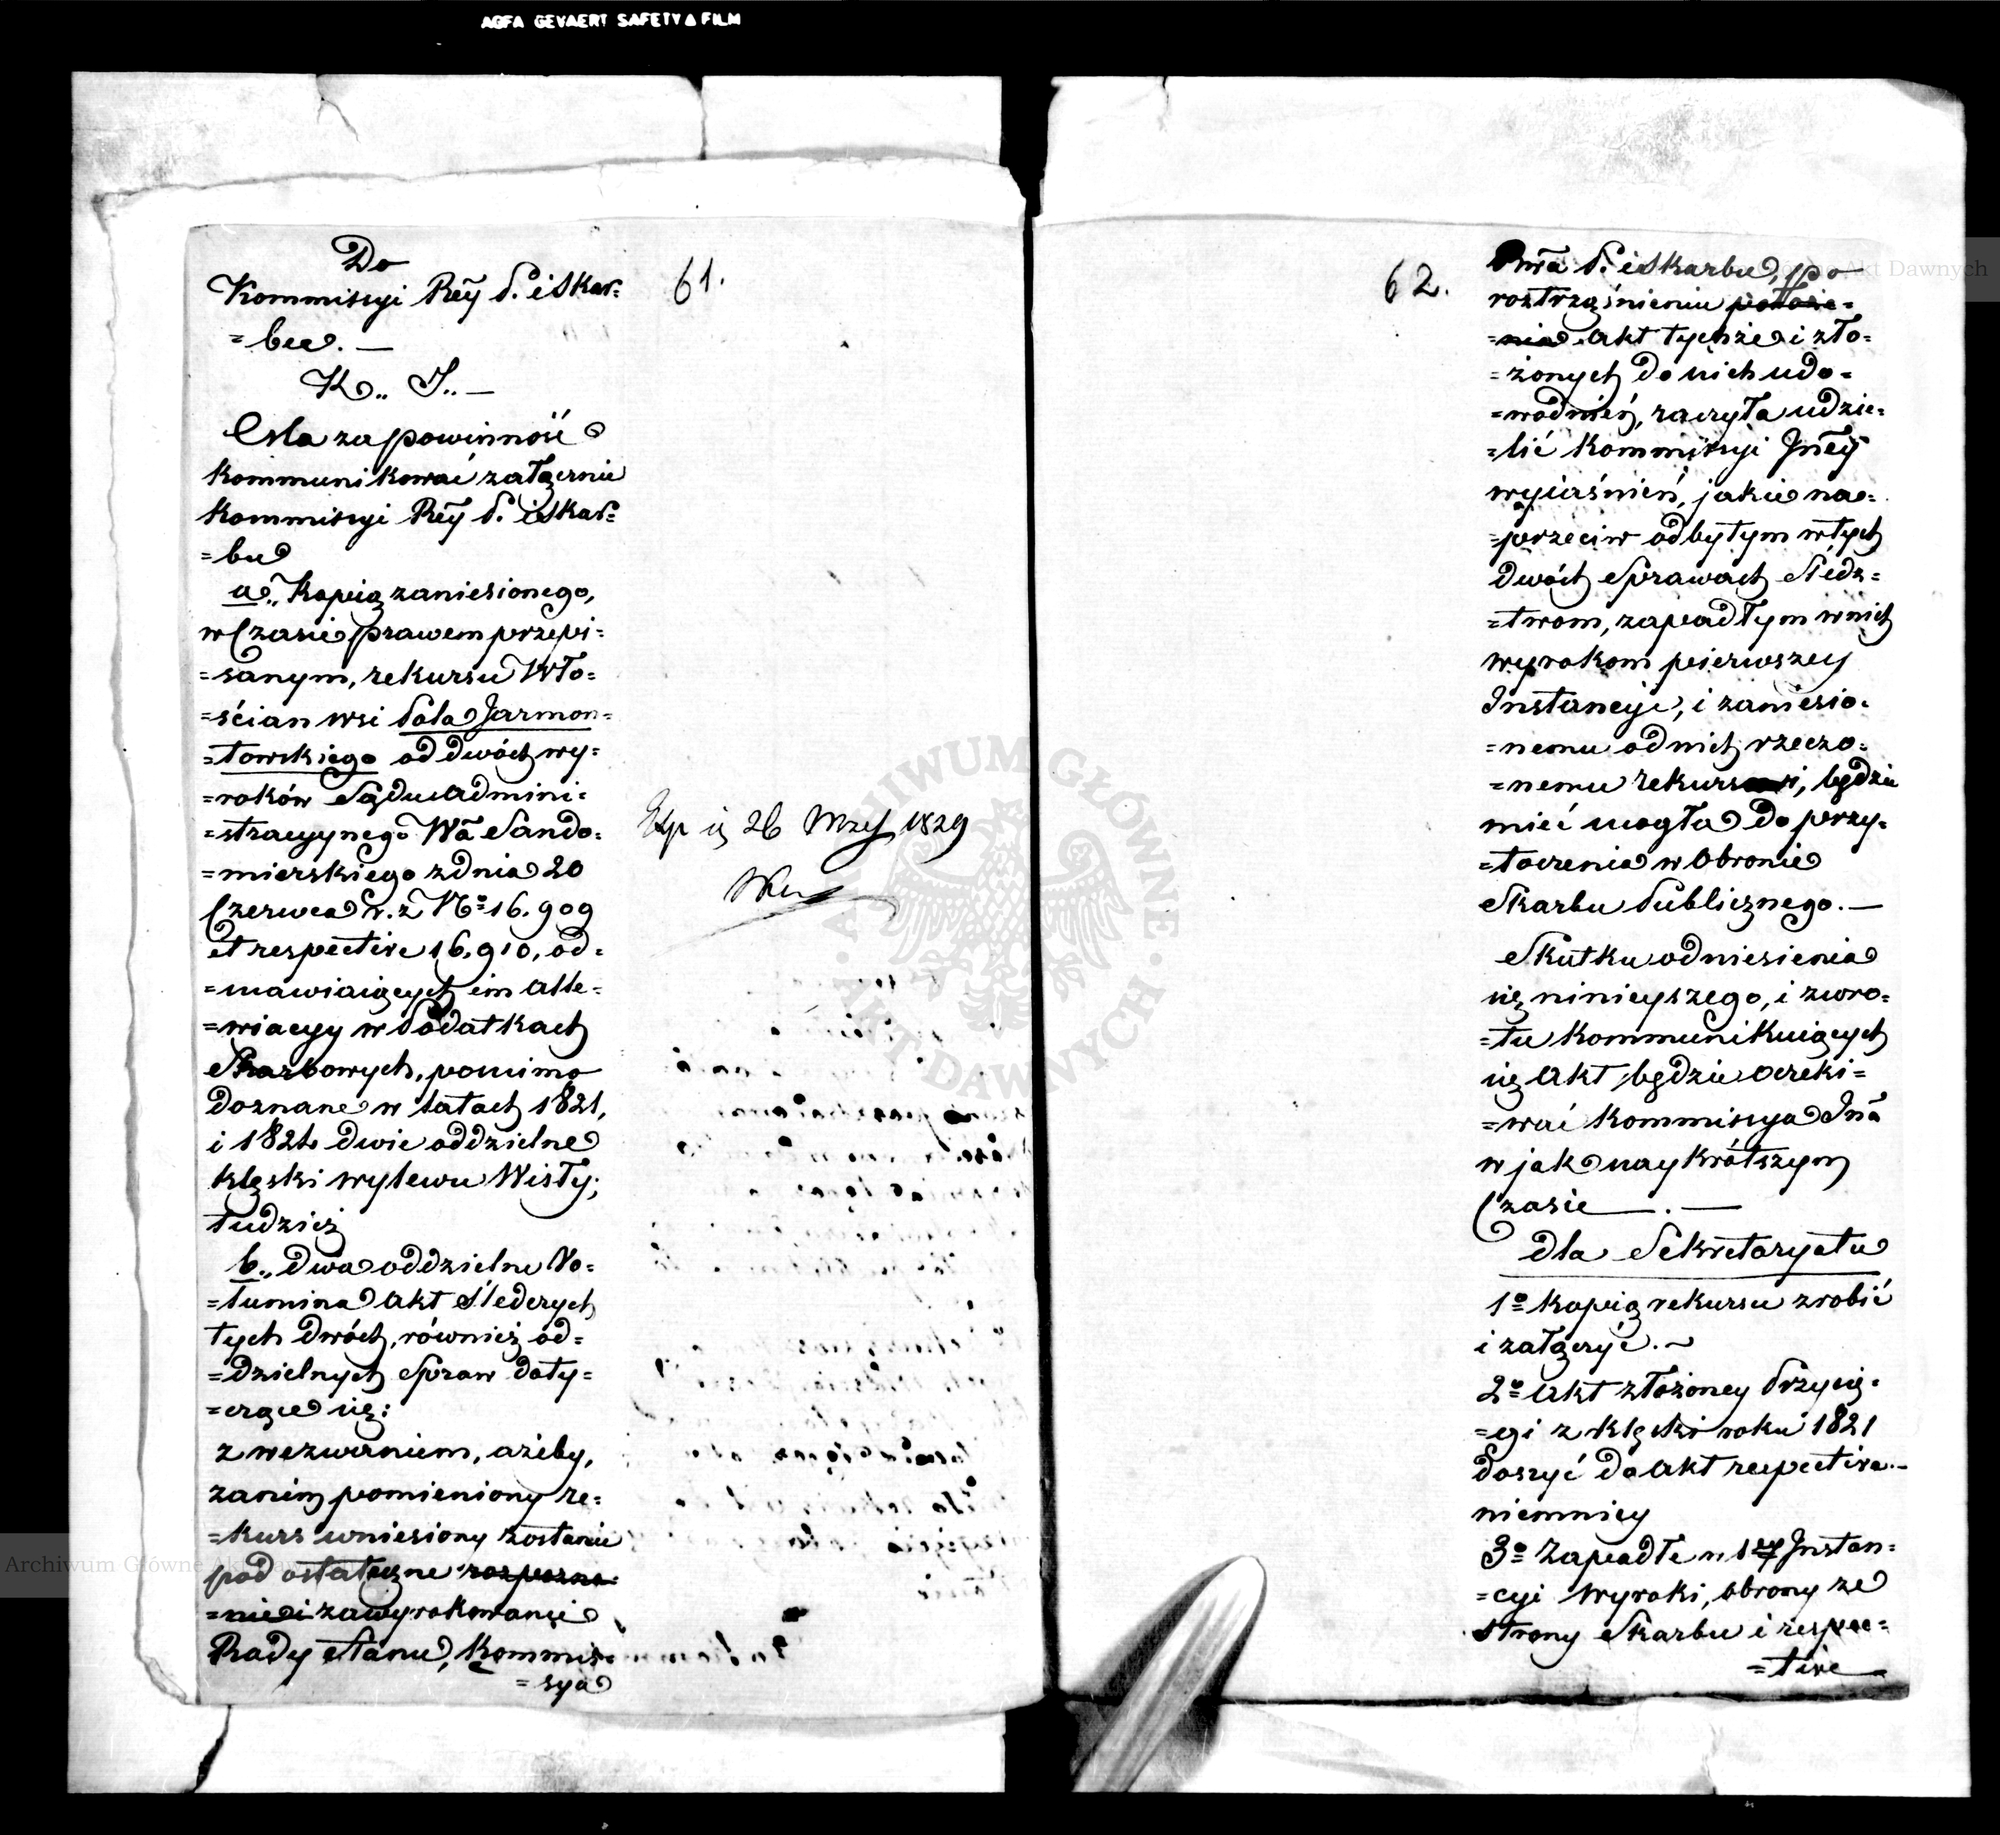 AGFA GEVAERT SAFETY FILM
61.
Do
Kommissyi Rz̃ey P. i Skar=
=bu. —
K.. J.. —
Ma za powinność
kommunikować załącznie
Kommissyi Rz̃ey P. i Skar=
=bu
a.. Kopią zaniesionego,
w Czasie prawem przepi=
=sanym, rekursu Wło=
=ścian wsi Pola Jarmon=
=towskiego od dwóch wy=
=roków Sądu Admini=
=stracyynego Wã Sando=
=mierskiego z dnia 20
Czerwca r. z. No 16.909
et respective 16.910, od=
=mawiaiących im Alle=
=wiacyy w Podatkach
Skarbowych, pomimo
doznane w latach 1821,
i 1824 dwie oddzielne
klęski wylewu Wisły;
tudzież
b.. dwa oddzielne Vo=
=lumina Akt Śledczych
tych dwóch, również od=
=dzielnych Spraw doty=
=czące się:
z wezwaniem, ażeby,
zanim pomieniony re=
=kurs wniesiony zostanie
pod ostateczne rozpozna=
=nie i zawyrokowanie
Rady Stanu, Kommis=
=sya
26 1829
62.
P. i Skarbu, po
roztrząśnieniu położe=
=nia Akt tychże i zło=
=żonych do nich udo=
=wodnień, raczyła udzie=
=lić Kommissyi Jñey
wyiaśnień, jakie na=
=przeciw odbytym w tych
dwóch Sprawach Śledz=
=twom, zapadłym w nich
wyrokom pierwszey
Instancyi, i zaniesio=
=nemu od nich rzeczo=
=nemu rekursowi, będzie
mieć mogła do przy=
=toczenia w Obronie
Skarbu Publicznego. —
Skutku odniesienia
się ninieyszego, i zwro=
=tu kommunikuiących
się Akt, będzie oczeki=
=wać Kommissya Jña
w jak naykrótszym
Czasie —.—
dla Sekretaryatu
1o Kopią rekursu zrobić
i załączyć. —
2o Akt złożoney Przysię=
=gi z klęski roku 1821
doszyć do Akt respective.—
niemniey
3o Zapadłe w 1ey Instan=
=cyi wyroki, obrony ze
strony Skarbu i respec=
=tive
ARCHIWUM GŁÓWNE
AKT DAWNYCH
Archiwum Główne Akt Dawnych
Archiwum Główne Akt Dawnych